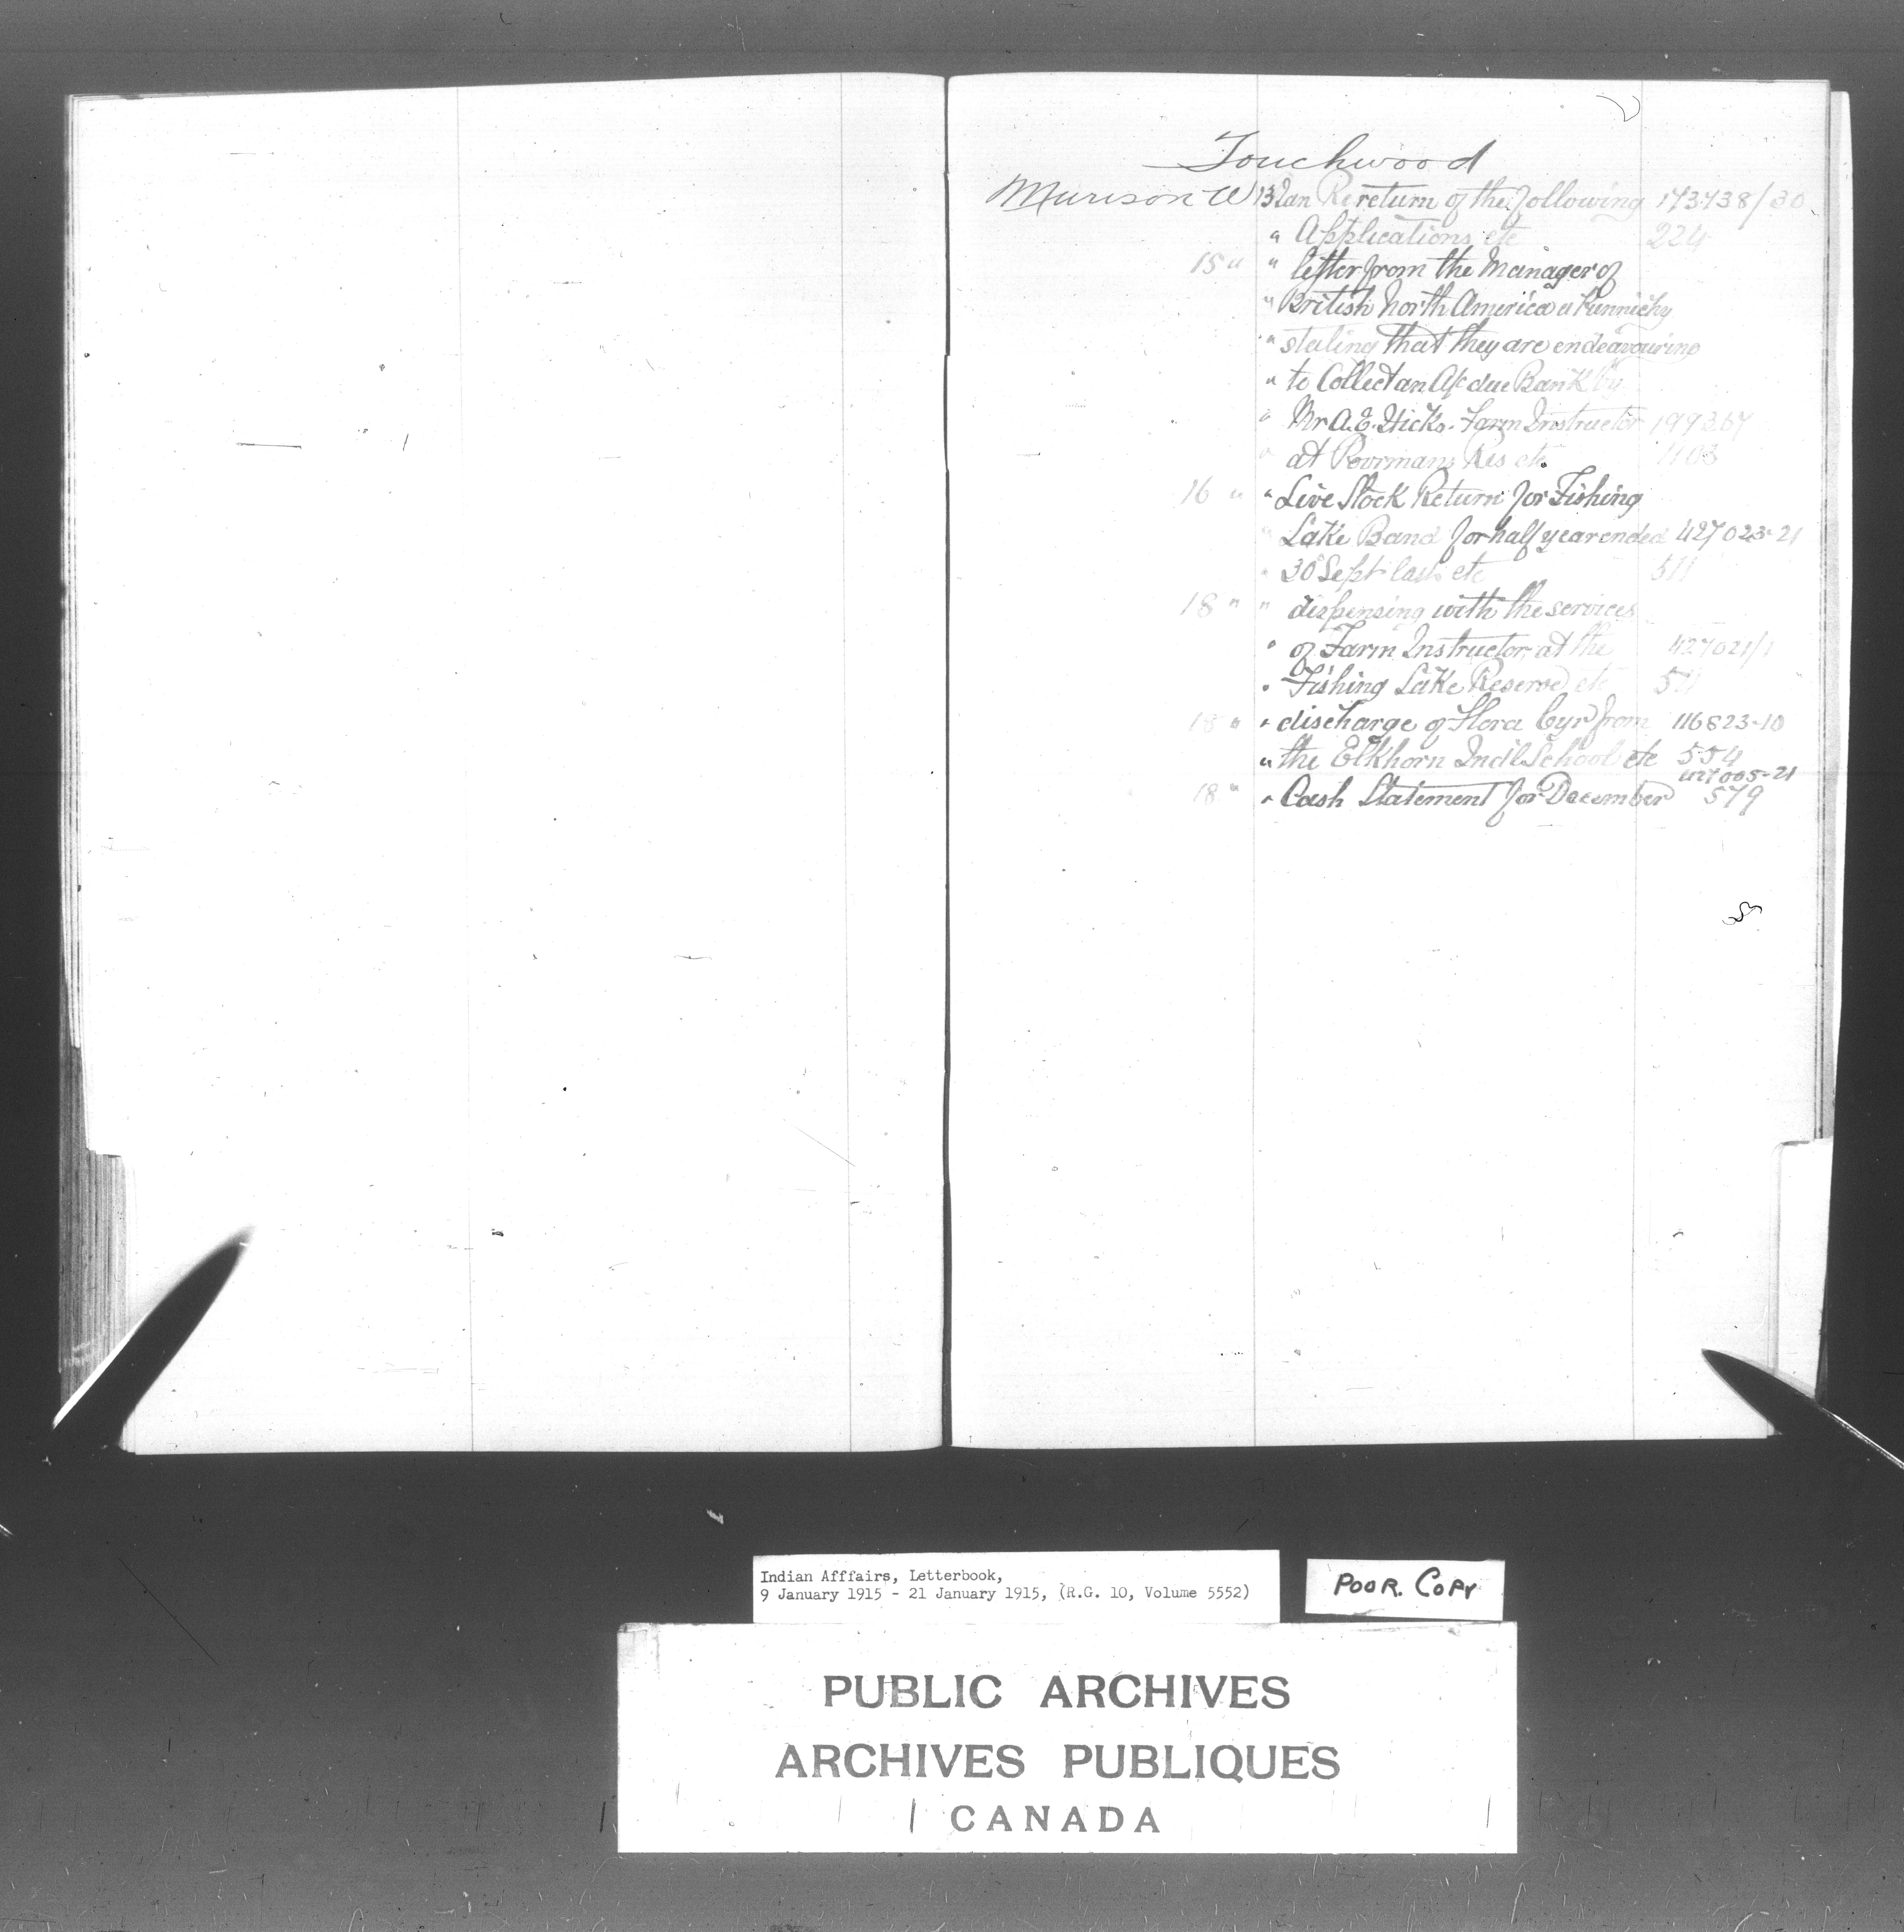 Touchwood
Murison W 13 Jan Re return of the following 173738/30
" Applications etc 224
15 " " letter from the Manager of
" British North America a Punnichy
" stating that they are endeavouring
" to Collect an A/c due Bank by
" Mr A. E. Hicks. Farm Instructor 199367
" at Poormans Res etc 403
16 " " Live Stock Return for Fishing
" Lake Band for half year ended 427023-21
" 30 Sept last etc 511
18 " " dispensing with the services
" of Farm Instructor at the 427021/1
" Fishing Lake Reserve etc 511
18 " " discharge of Flora Cyr from 116823-10
" the Elkhorn Ind'l School etc 554
427005-21
18 " " Cash Statement for December 579
Indian Afffairs, Letterbook,
9 January 1915 - 21 January 1915, (R.G. 10, Volume 5552)
POOR. COPY
PUBLIC ARCHIVES
ARCHIVES PUBLIQUES
CANADA